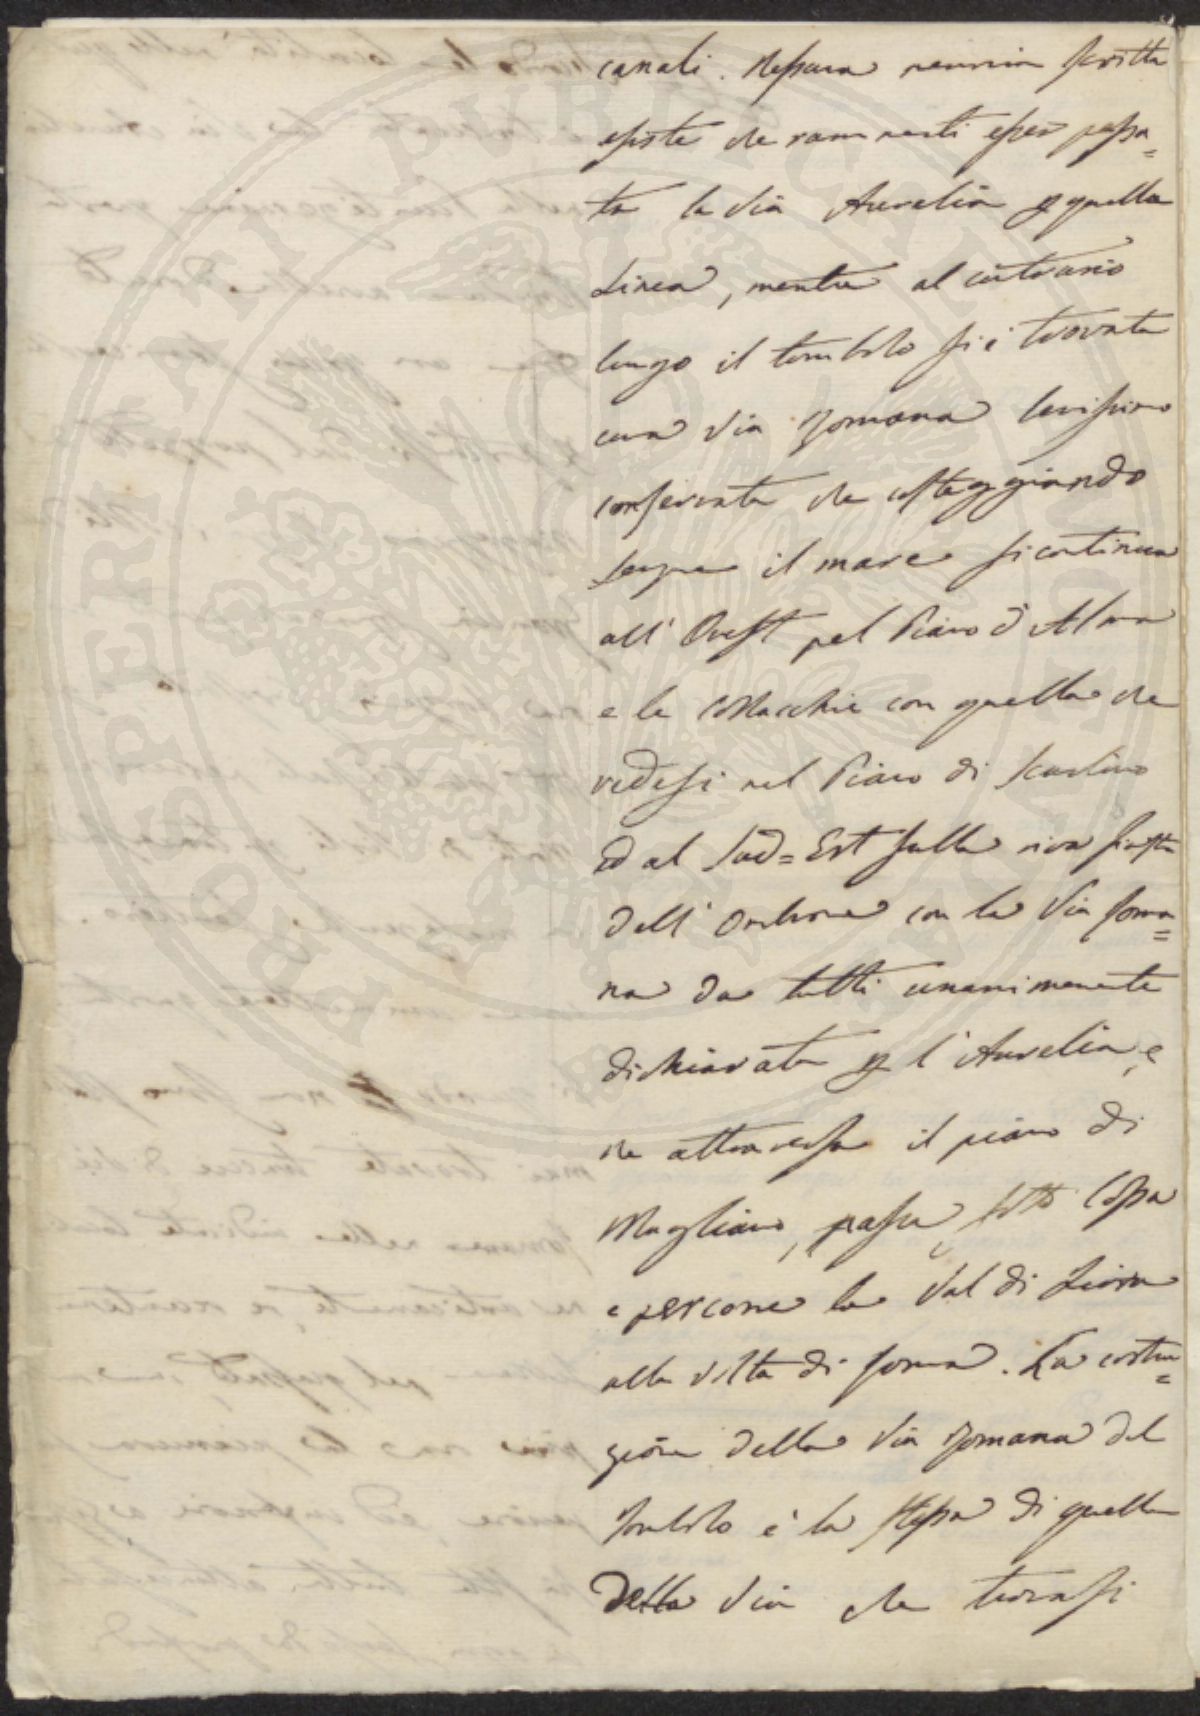 canali. Nessuna memoria scritta
esiste che rammenti esser passa=
ta la Via Aurelia p quella
Linea, mentre al contrario
lungo il tombolo si è trovata
una Via Romana benissimo
conservata che costeggiando
sempre il mare si continua
all' Ovest pel Piano d'Alma
e le Collacchie con quella che
vedesi nel Piano di Scarlino
ed al Sud=Est sulla riva sinistra
dell' Ombrone con la Via Roma=
na da tutti unanimemente
dichiarata p l'Aurelia, e
che attraversa il piano di
Magliano, passa sotto Cossa
e percorre la Val di Fiora
alla volta di Roma. La costru=
zione della Via Romana del
Tombolo è la stessa di quella
della Via che trovasi
PROSPERITATI PUBLICAE AUGENDAE